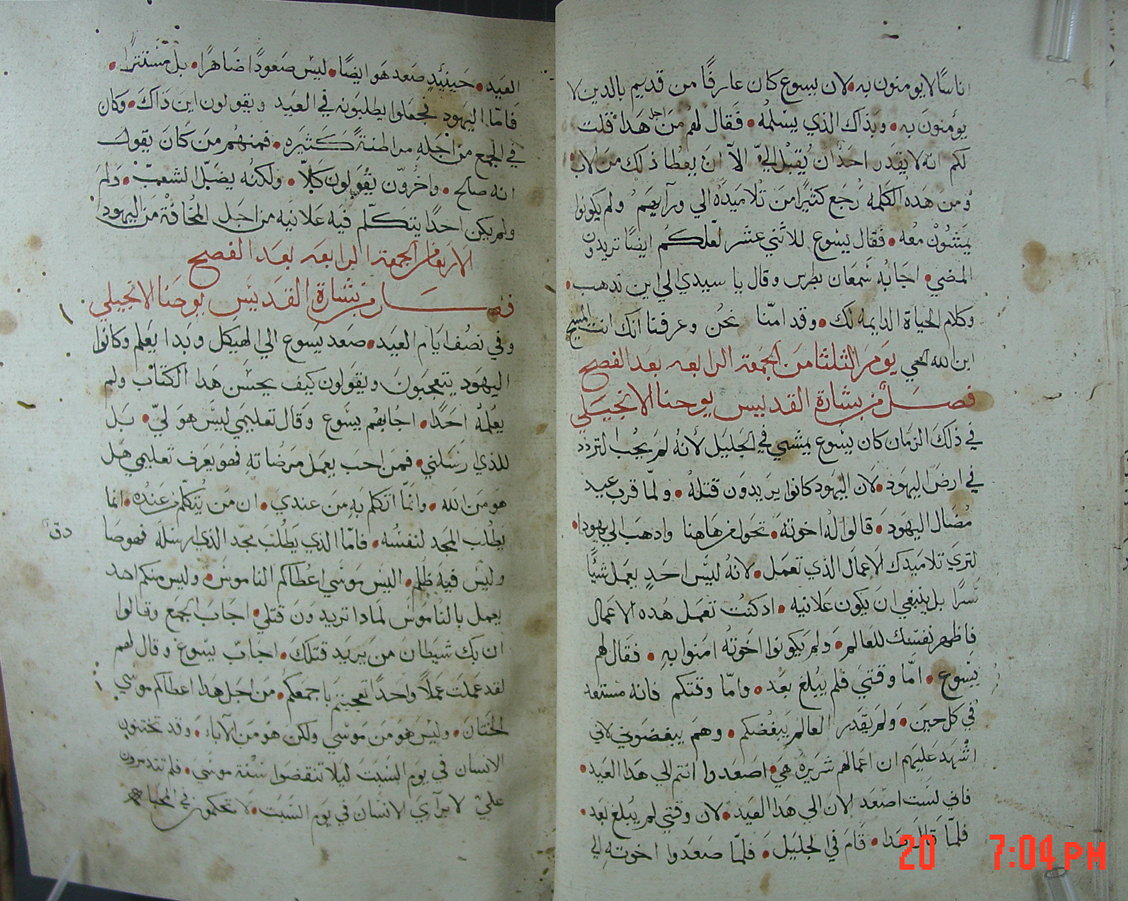 اناسًا لا يومنون به • لان يسوع كان عارفًا من قديم بالدين لا
يومنون به • وبذاك الذي يسلمه • فقال لهم من اجل هذا قلت
لكم انه لا يقدر احدٌ ان يُقبل اليّ الا ان يعطا ذلك من الاب
ومن هده الكلمه رجع كثيرًا من تلاميذه الي ورآيهم ولم يكونوا
يمشون معه • فقال يسوع للاثني عشر لعلكم ايضًا تريدون
المضي • اجابه شمعان بطرس وقال يا سيدي الي من نذهب •
وكلام الحياة الدايمه لك • وقد امنّا نحن وعرفنا انك انت المسيح
ابن الله الحي يوم الثلثا من الجمعه الرابعه بعد الفصح
فصل من بشارة القديس يوحنا الانجيلي
في ذلك الزمان كان يسوع يمشي في الجليل لانه لم يحب التردد
في ارض اليهود • لان اليهود كانوا يريدون قتله • ولما قرب عيد
مضال اليهود • قالوا له اخوته • تحول من هاهنا وادهب الي يهودا •
لتري تلاميدك الاعمال الذي تعمل • لانه ليس احدٍ يعمل شيًا
سرًا بل ينبغي ان يكون علانيه • ادكنت تعمل هده الاعمال
فاظهر نفسك للعالم • ولم يكونوا اخوته امنوا به • فقال لهم
يسوع • امّا وقتي فلم يبلغ بعد • وامّا وقتكم فانه مستعد
في كل حين • ولم يقدر العالم يبغضكم • وهم يبغضوني لاني
اشهد عليهم ان اعمالهم شريره هي • اصعدوا انتم الي هذا العيد •
فاني لست اصعد الان الي هدا العيد • لان وقتي لم يبلغ بعد •
فلمّا قال هدا • قام في الجليل • فلمّا صعدوا اخوته الي
العيد • حينيدٍ صعد هو ايضًا • ليس صعودًا ضاهرًا • بل مستترًا •
فامّا اليهود فجعلوا يطلبونه في العيد ويقولون اين ذاك • وكان
في الجمع من اجله مراطنةً كثيره • فمنهم من كان يقول
انه صالح • واخرون يقولون كلا • ولكنه يضل الشعب • ولم
ولم يكن احدًا يتكلم فيه علانيه من اجل المخافة من اليهود
الاربعا من الجمعه الرابعه بعد الفصح
فصل من بشارة القديس يوحنا الانجيلي
وفي نصف ايام العيد • صعد يسوع الي الهيكل وبدا يعلم وكانوا
اليهود يتعجبون ويقولون كيف يحسن هدا الكتاب ولم
يعلمه احدًا • اجابهم يسوع وقال تعليمي ليس هو لي • بل
للذي ارسلني • فمن احب يعمل مرضاته فهو يعرف تعليمي هل
هو من الله • وانمّا اتكلم به من عندي • ان من يتكلم من عنده • انما
يطلب المجد لنفسه • فامّا الذي يطلب مجد الذي ارسله فهو صا
دق
وليس فيه ظلم • اليس موسي اعطاكم الناموس • وليس منكم احد
يعمل بالناموس لمادا تريدون قتلي • اجاب الجمع وقالوا
ان بك شيطان من يريد قتلك • اجاب يسوع وقال لهم
لقد عملت عملاً واحدًا تعجبتم باجمعكم • من اجل هدا اعطاكم موسي
الختان • وليس هو من موسي ولكن هو من الآباء • وقد تختنون
الانسان في يوم السبت ليلا تنقضوا سُنة موسي • فلم تتدمرون
عليّ لابراي الانسان في يوم السبت • لا تحكموا في